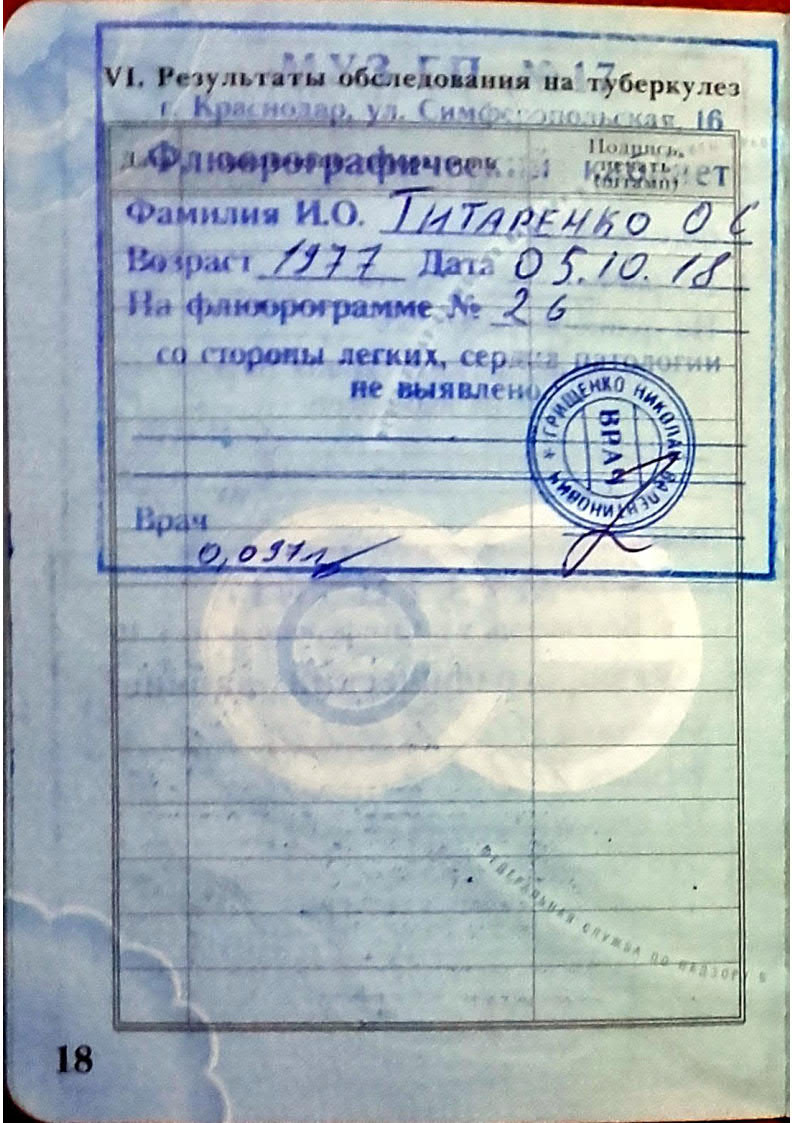 МУЗ ГП №17
VI. Результаты обследования на туберкулез
г. Краснодар, ул. Симферопольская, 16
Подпись,
печать
(штамп)
Флюорографический кабинет
Фамилия И.О. ТИТАРЕНКО О С
Возраст 1977 Дата 05.10.18
На флюорограмме № 26
со стороны легких, сердца патологии
не выявлено
ГРИЩЕНКО НИКОЛАЙ ВАЛЕНТИНОВИЧ
ВРАЧ
Врач
0,097
ФЕДЕРАЛЬНАЯ СЛУЖБА ПО НАДЗОРУ В
18